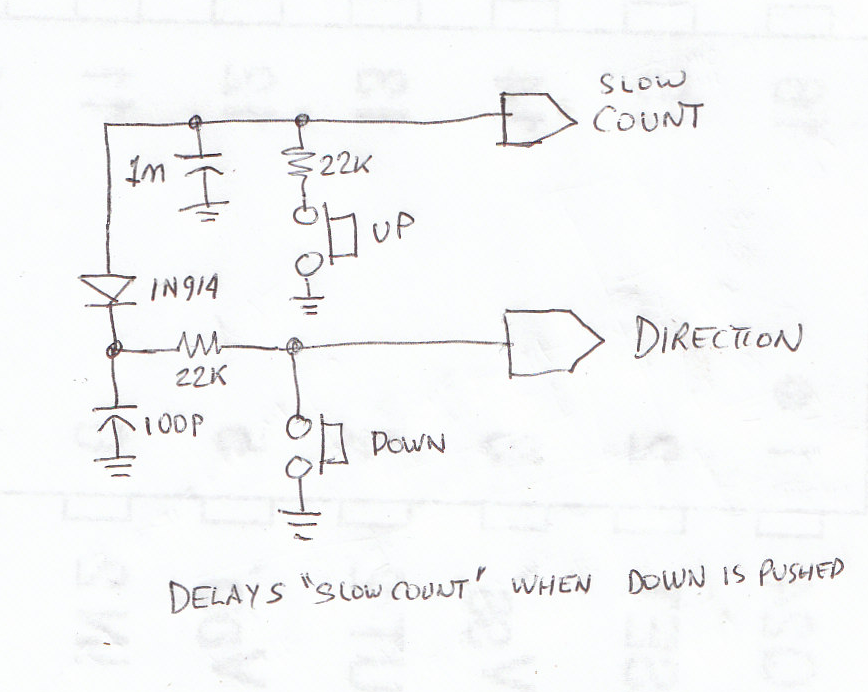 SLOW
COUNT
1n
22K
UP
1N914
DIRECTION
22K
100P
DOWN
DELAYS "SLOW COUNT" WHEN DOWN IS PUSHED